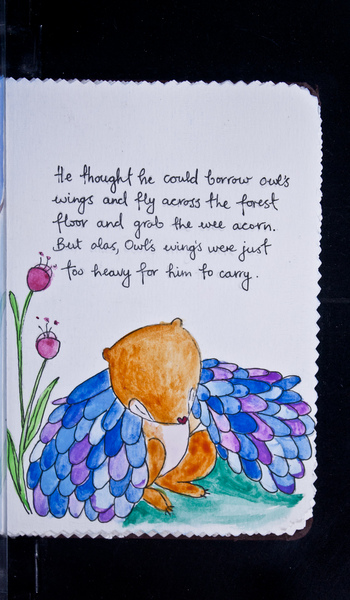 He thought he could borrow owl's
wings and fly across the forest
floor and grab the wee acorn.
But alas, Owl's wing's were just
too heavy for him to carry.